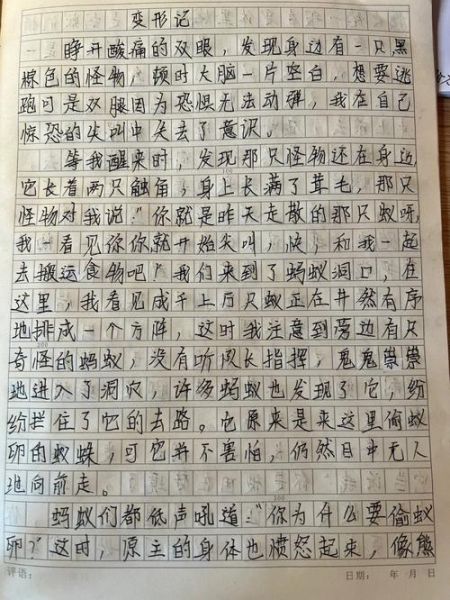 变形记
睁开酸痛的双眼，发现身边有一只黑
棕色的怪物，顿时大脑一片空白，想要逃
跑可是双腿因为恐惧无法动弹，我在自己
惊恐的尖叫中失去了意识。
等我醒来时，发现那只怪物还在身边，
它长着两只触角，身上长满了茸毛，那只
怪物对我说：“你就是昨天走散的那只蚁呀，
我一看见你你就开始尖叫，快，和我一起
去搬运食物吧！”我们来到了蚂蚁洞口，在
这里，我看见成千上万只蚁正在井然有序
地排成一个方阵，这时我注意到旁边有只
奇怪的蚂蚁，没有听队长指挥，鬼鬼祟祟
地进入了洞穴，许多蚂蚁也发现了它，纷
纷拦住了它的去路。它原来是来这里偷蚁
卵的蚁蛛，可它并不害怕，仍然目中无人
地向前走。
蚂蚁们都低声吼道：“你为什么要偷蚁
卵？”这时，原主的身体也愤怒起来，像熊
评语： 日期： 年 月 日